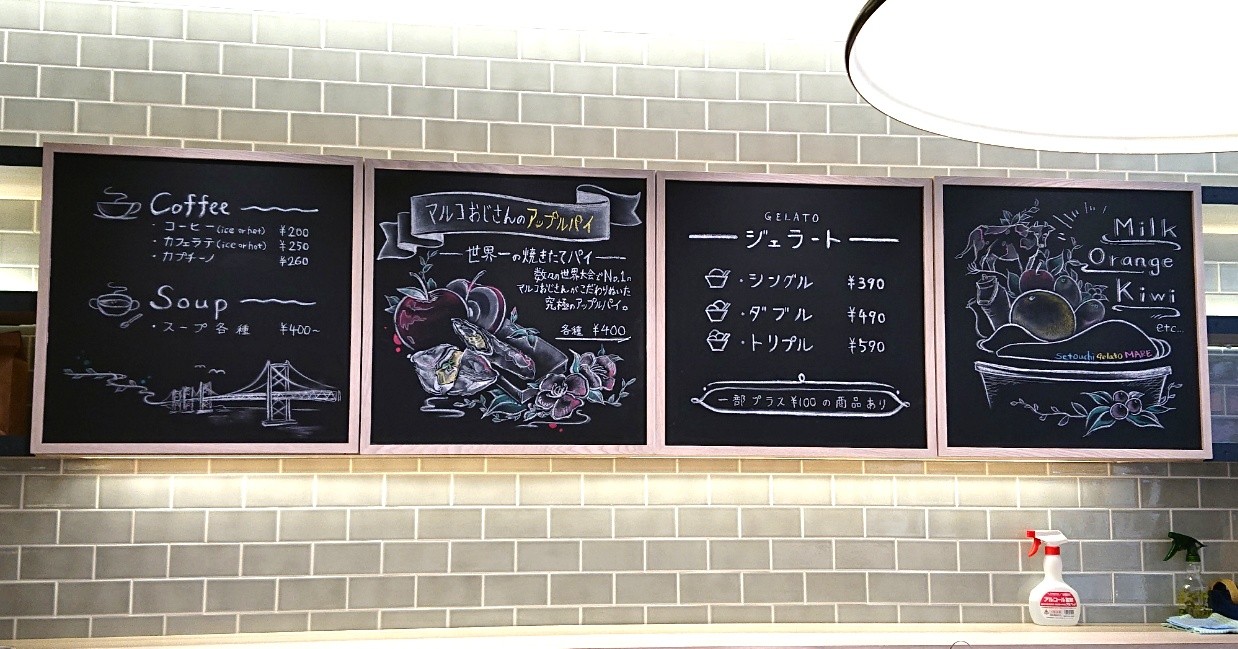 Coffee
・コーヒー(ice or hot) ¥200
・カフェラテ(ice or hot) ¥250
・カプチーノ ¥260
Soup
・スープ各種 ¥400~
マルコおじさんのアップルパイ
世界一の焼きたてパイ
数々の世界大会でNo.1の
マルコおじさんがこだわりぬいた
究極のアップルパイ。
各種 ¥400
GELATO
ジェラート
・シングル ¥390
・ダブル ¥490
・トリプル ¥590
一部プラス¥100の商品あり
Milk
Orange
Kiwi
etc...
Setouchi Gelato MARE
アルコール